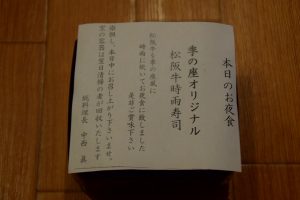 本日のお夜食
季の座オリジナル
松阪牛時雨寿司
松阪牛を季の座風に
時雨に炊いてお夜食に致しました
是非ご賞味下さい
本日中にお召し上がり下さいませ。
空の容器は翌日清掃の者が回収いたします
総料理長 中西 眞